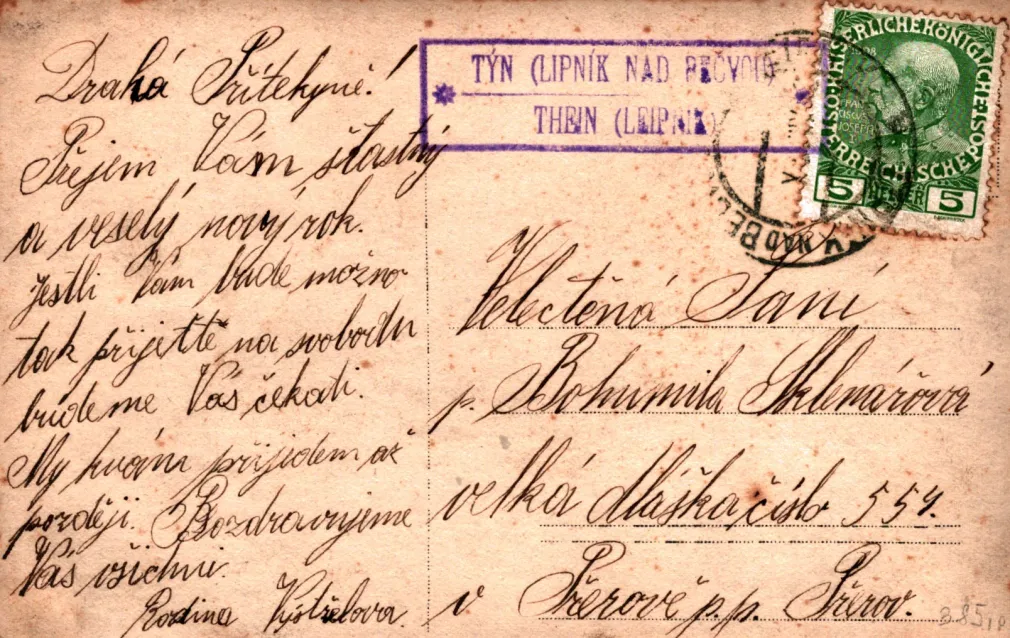 Drahá Přítekyně!
Přejem Vám štastný
a veselý nový rok.
Jestli Vám bude možno
tak přijeťte na svobodu
budeme Vás čekati.
My kvám přijidem až
pozděj. Pozdravujeme
Vás všichni.
Rodina Výstřelova.
TÝN (LIPNÍK NAD BEČVOU)
THEIN (LEIPNIK)
KAISERLICHE KÖNIGLICHE
ÖSTERREICHISCHE POST
5 HELLER 5
NAD BEČ
Velectěná Paní
p. Bohumila Sklenářová
velká Dláška číslo 554.
v Přerově p.p. Přerov.